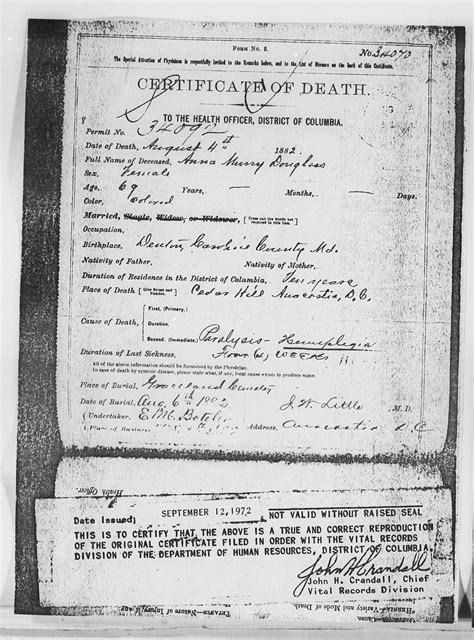 FORM No. 2.
No 34070
The Special Attention of Physicians is respectfully invited to the Remarks below, and to the List of Diseases on the back of this Certificate.
CERTIFICATE OF DEATH.
TO THE HEALTH OFFICER, DISTRICT OF COLUMBIA.
Permit No. 34092
Date of Death, August 4th 1882
Full Name of Deceased, Anna Murry Douglass
Sex, Female
Age, 69 Years, — Months, — Days.
Color, Colored
Married, Single, Widow, or Widower, [Cross out the words not required in this line.]
Occupation,
Birthplace, Denton Caroline County Md.
Nativity of Father, Nativity of Mother,
Duration of Residence in the District of Columbia, Ten years
Place of Death, [Give Street and Number.] Cedar Hill Anacostia, D.C.
Cause of Death, First, (Primary.)
Duration.
Second. (Immediate.) Paralysis - Hemiplegia
Duration of Last Sickness, Four (4) weeks
All of the above information should be furnished by the Physician.
In case of death by zymotic disease, please state what, if any, local cause exists to produce same.
Place of Burial, Graceland
Date of Burial, Aug. 6th J. W. Little M. D.
Undertaker,
Place of Business Address, Anacostia D.C
Health Officer.
Date Issued; SEPTEMBER 12,1972 NOT VALID WITHOUT RAISED SEAL
THIS IS TO CERTIFY THAT THE ABOVE IS A TRUE AND CORRECT REPRODUCTION
OF THE ORIGINAL CERTIFICATE FILED IN ORDER WITH THE VITAL RECORDS
DIVISION OF THE DEPARTMENT OF HUMAN RESOURCES, DISTRICT OF COLUMBIA.
John H Crandall
John H. Crandall, Chief
Vital Records Division